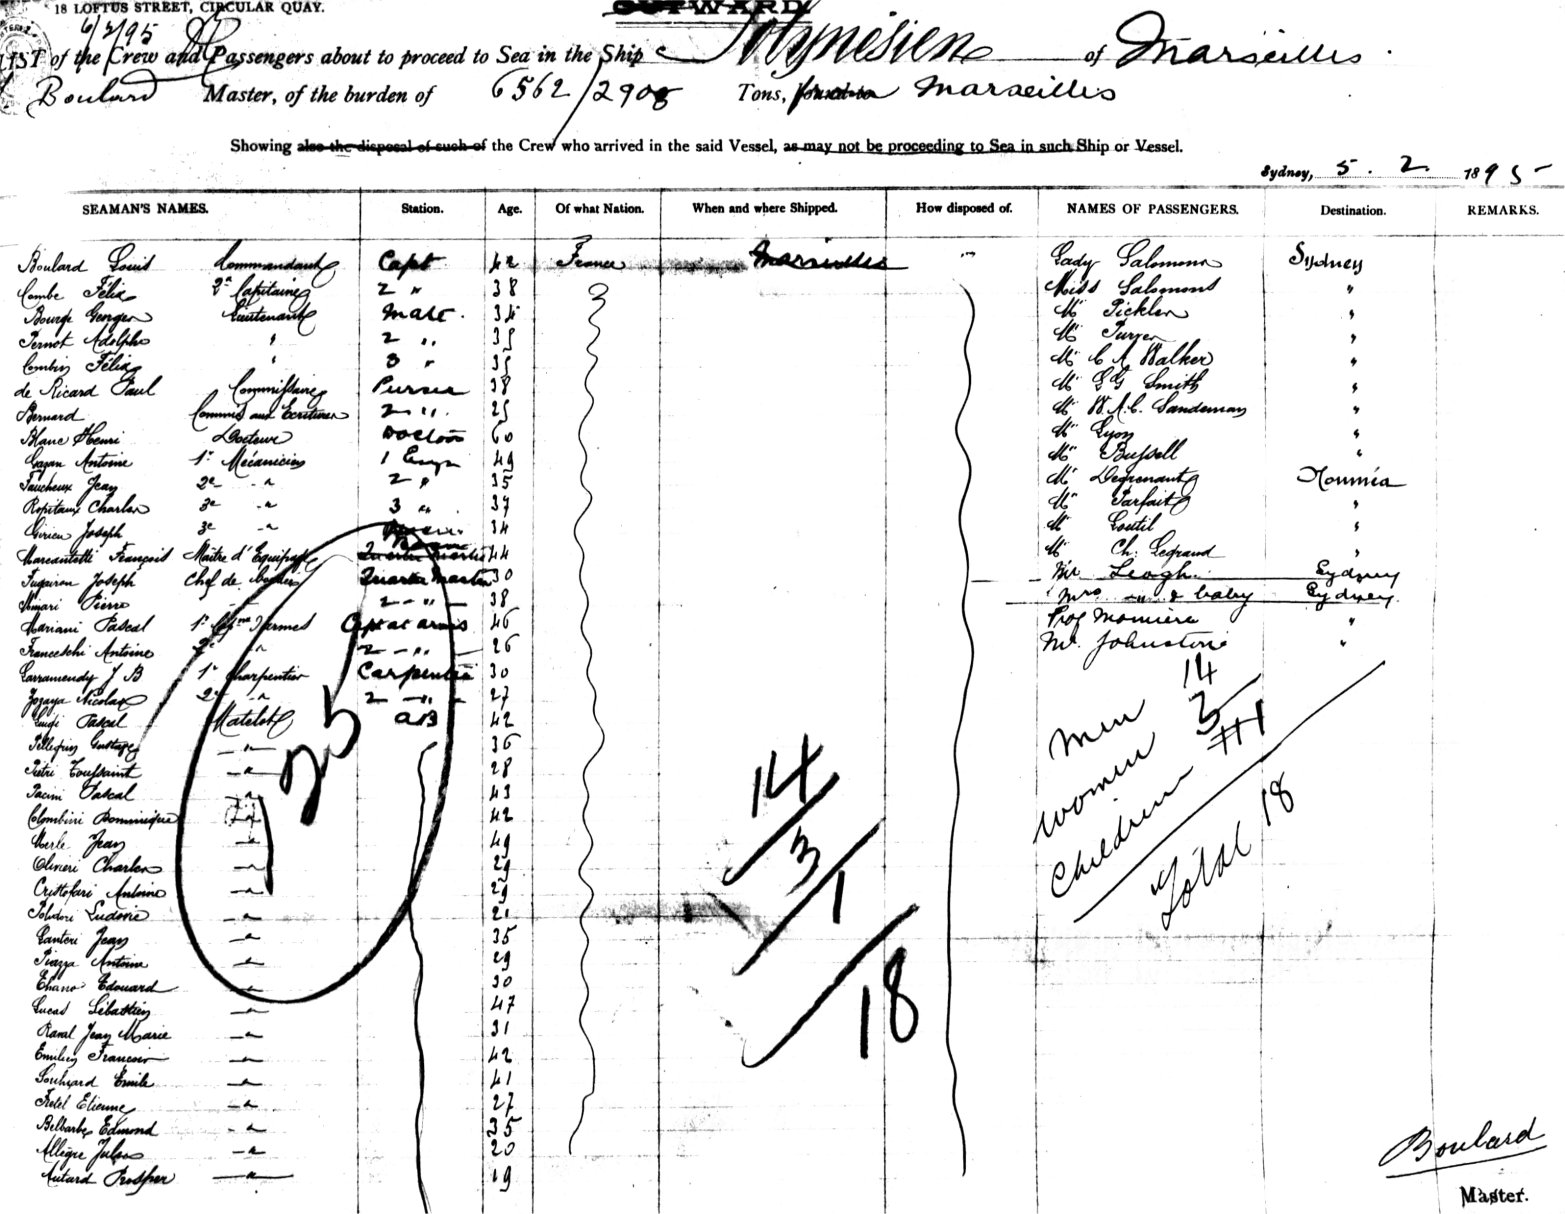 18 LOFTUS STREET, CIRCULAR QUAY.
OUTWARD.
6/2/95
LIST of the Crew and Passengers about to proceed to Sea in the Ship Polynesien of Marseilles.
Boulard Master, of the burden of 6562/2908 Tons, Marseilles
Showing also the disposal of such of the Crew who arrived in the said Vessel, as may not be proceeding to Sea in such Ship or Vessel.
Sydney, 5. 2. 1895
SEAMAN'S NAMES. Station. Age. Of what Nation. When and where Shipped. How disposed of. NAMES OF PASSENGERS. Destination. REMARKS.
Boulard Louis Commandant Capt 42 France Marseilles " Lady Salomons Sydney
Combe Félix 2d Capitaine 2 " 38 Miss Salomons "
Bourge Georges Lieutenant Mate. 34 Mr Pickler "
Pernot Adolphe " 2 " 35 Mr "
Combin Félix " 3 " 35 Mr C A Walker "
de Ricard Paul Commissaire Purser 38 Mr G G Smith "
Bernard Commis aux Ecritures 2 " 25 Mr W.A.C. Sandeman "
Blanc Henri Docteur Doctor 60 Mr Lyon "
Gazan Antoine 1r Mécanicien 1 Engr 49 Mr Bussell "
Faucheux Jean 2e " 2 " 35 Mr Degrenant Noumia
Charles 3e " 3 " 37 Mr Parfait "
Joseph 3e " 34 Mr Loutil "
François Maître d'Equipage 44 Mr Ch. Legrand "
Joseph Chef de Quarter Master 30 Mr Leagh Sydney
Pierre 2 - " 38 Mrs " & baby Sydney
Mariani Pascal 1r Capne d'armes Capt at arms 46 Prof Momiere "
Franceschi Antoine 2e " 2 - " 26 Mr. Johnstone "
Larramendy J B 1r Charpentier Carpenter 30
Nicolas 2e " 2 - " - 27
Luigi Pascal Matelot AB 42
Pellegrin Gustave " 36
Pietri Toussaint " 28
Pacini Pascal " 43
Colombini Dominique " 42
Merle Jean " 49
Olivieri Charles " 29
Cristofari Antoine " 29
Polidori Ludovic " 21
Lanteri Jean " 35
Piazza Antoine " 29
Edouard " 30
Lucas Sébastien " 47
Raval Jean Marie " 31
Emilien François " 42
Emile " 41
Fretel Etienne " 27
Belbarbe Edmond " 35
Allègre Jules " 20
Autard Prosper " 19
125
14
3
1
18
Men 14
Women 3
Children 1
Total 18
Boulard
Master.